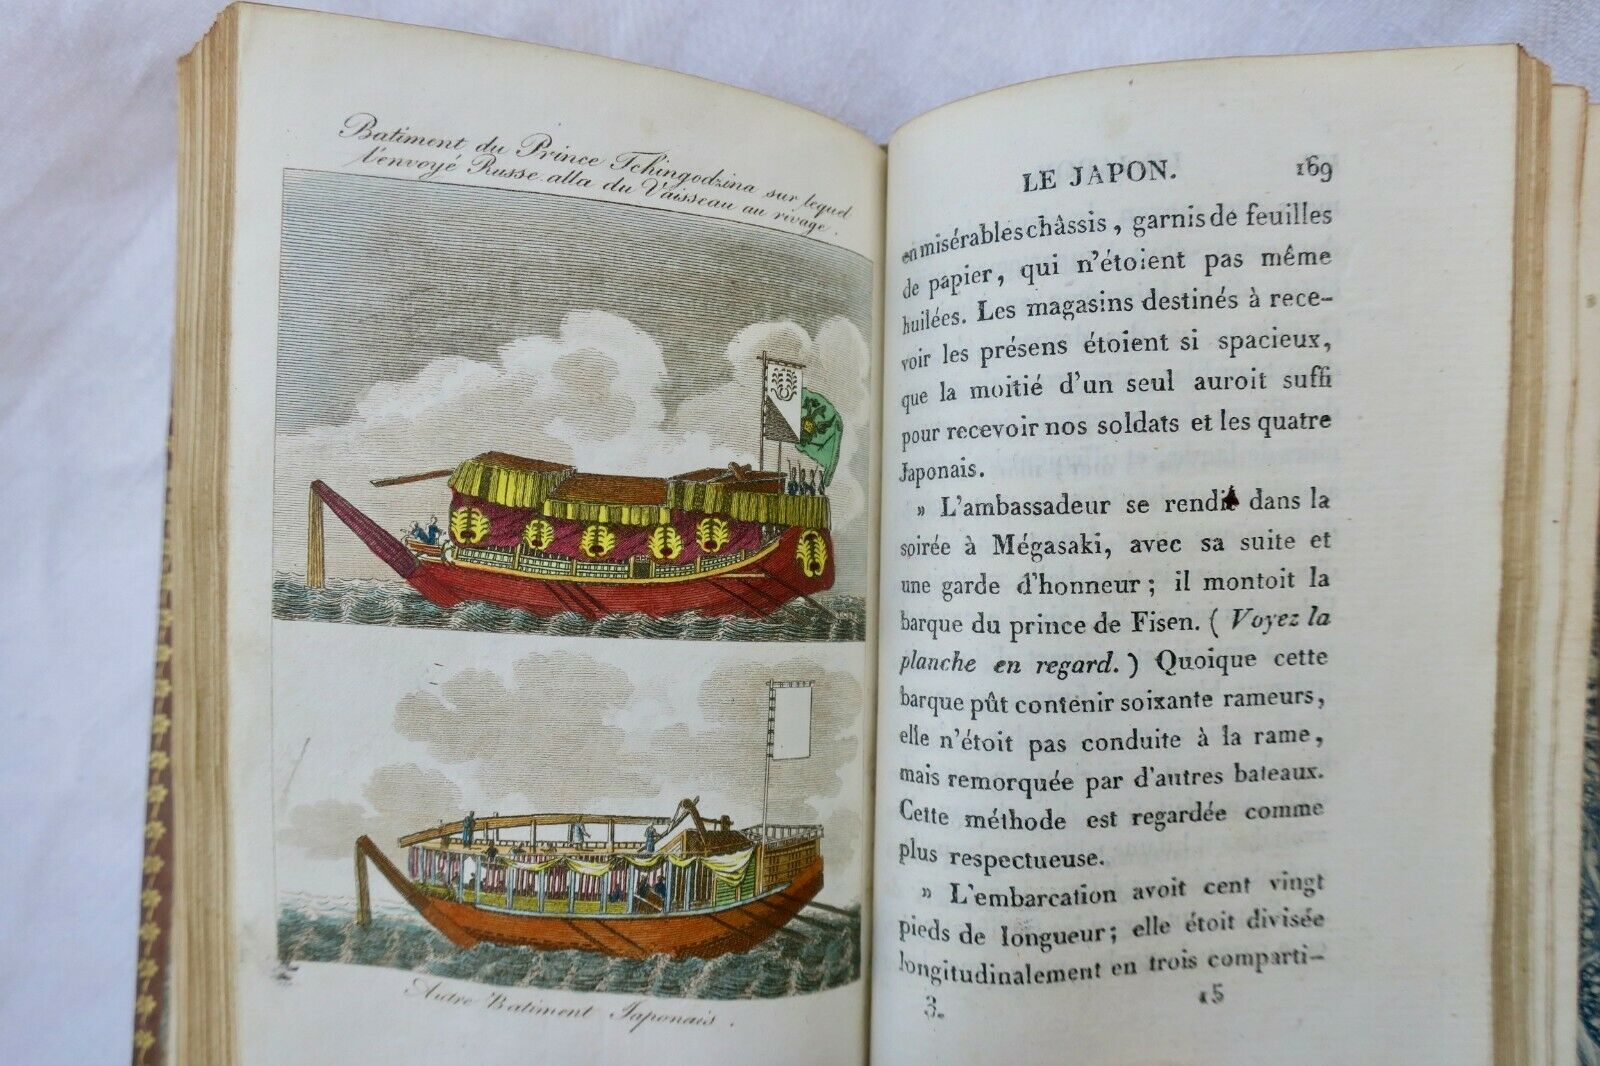 Batiment du Prince Tchingodzina sur lequel
l'envoyé Russe alla du Vaisseau au rivage.
Autre Batiment Japonais.
LE JAPON. 169
en misérables châssis, garnis de feuilles
de papier, qui n'étoient pas même
huilées. Les magasins destinés à rece-
voir les présens étoient si spacieux,
que la moitié d'un seul auroit suffi
pour recevoir nos soldats et les quatre
Japonais.
» L'ambassadeur se rendit dans la
soirée à Mégasaki, avec sa suite et
une garde d'honneur; il montoit la
barque du prince de Fisen. (Voyez la
planche en regard.) Quoique cette
barque pût contenir soixante rameurs,
elle n'étoit pas conduite à la rame,
mais remorquée par d'autres bateaux.
Cette méthode est regardée comme
plus respectueuse.
» L'embarcation avoit cent vingt
pieds de longueur; elle étoit divisée
longitudinalement en trois comparti-
3. 15